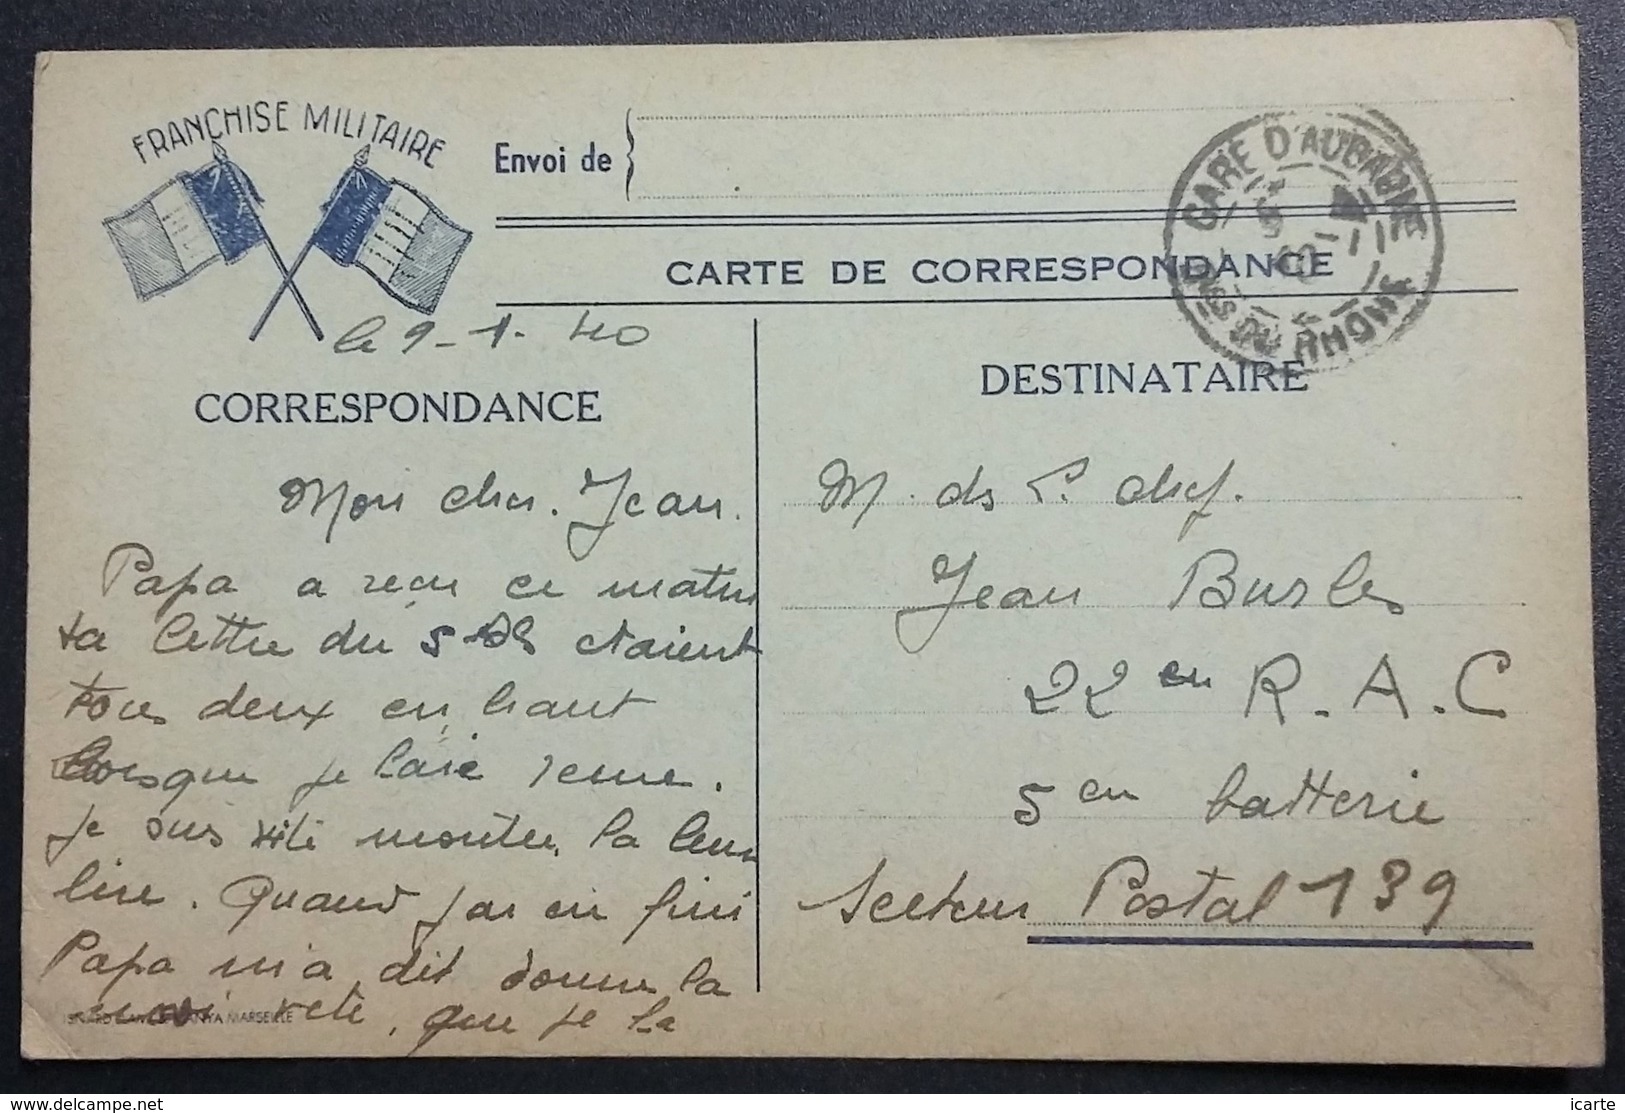 FRANCHISE MILITAIRE
Envoi de
GARE D'AUBAGNE
CARTE DE CORRESPONDANCE
DU RHONE
le 9-1-40
CORRESPONDANCE
Mon cher Jean.
Papa a reçu ce matin
ta lettre du 5 étaient
tous deux en haut
lorsque je
Je suis vite monter la leur
lire. Quand j'ai eu fini
Papa m'a dit donne la
moi, que je la
MARSEILLE
DESTINATAIRE
M. ds L. chef.
Jean Burles
22 em R.A.C
5 em batterie
Secteur Postal 139
www.delcampe.net
icarte